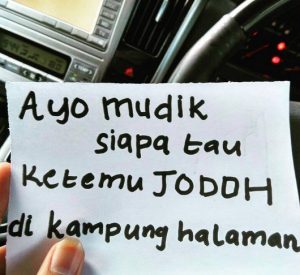 Ayo mudik
siapa tau
Ketemu JODOH
di kampung halaman